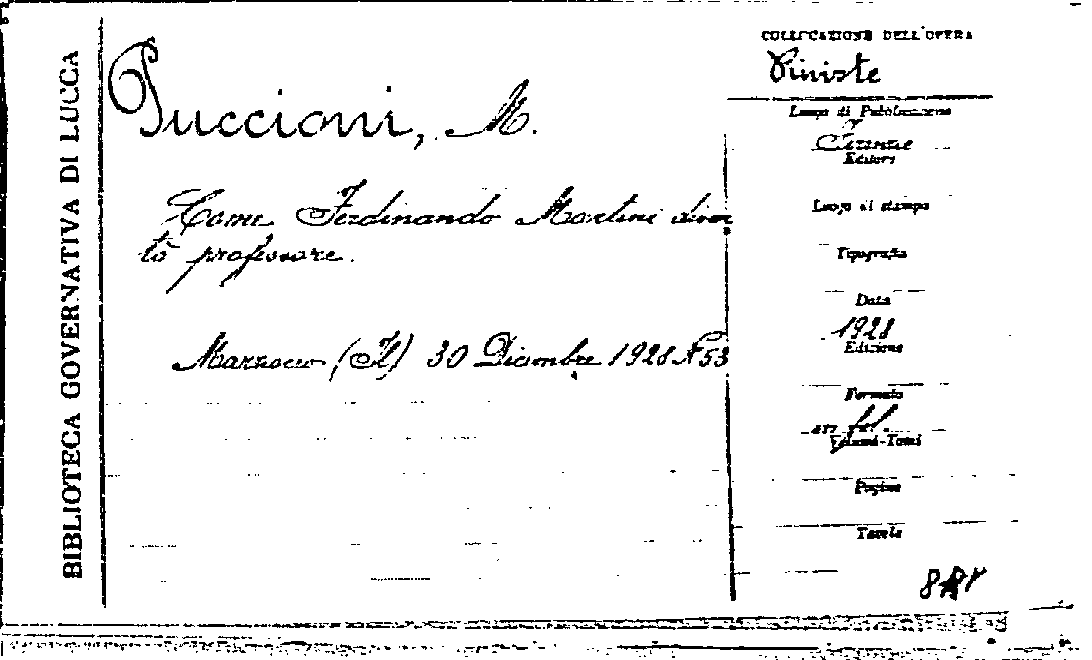 BIBLIOTECA GOVERNATIVA DI LUCCA
Puccioni, M.
Come Ferdinando Martini diven
tò professore.
Marzocco (Il) 30 Dicembre 1928 N 53
COLLOCAZIONE DELL'OPERA
Riviste
Luogo di Pubblicazione
Firenze
Editore
Luogo di stampa
Tipografia
Data
1928
Edizione
Formato
Volumi-Tomi
Pagine
Tavole